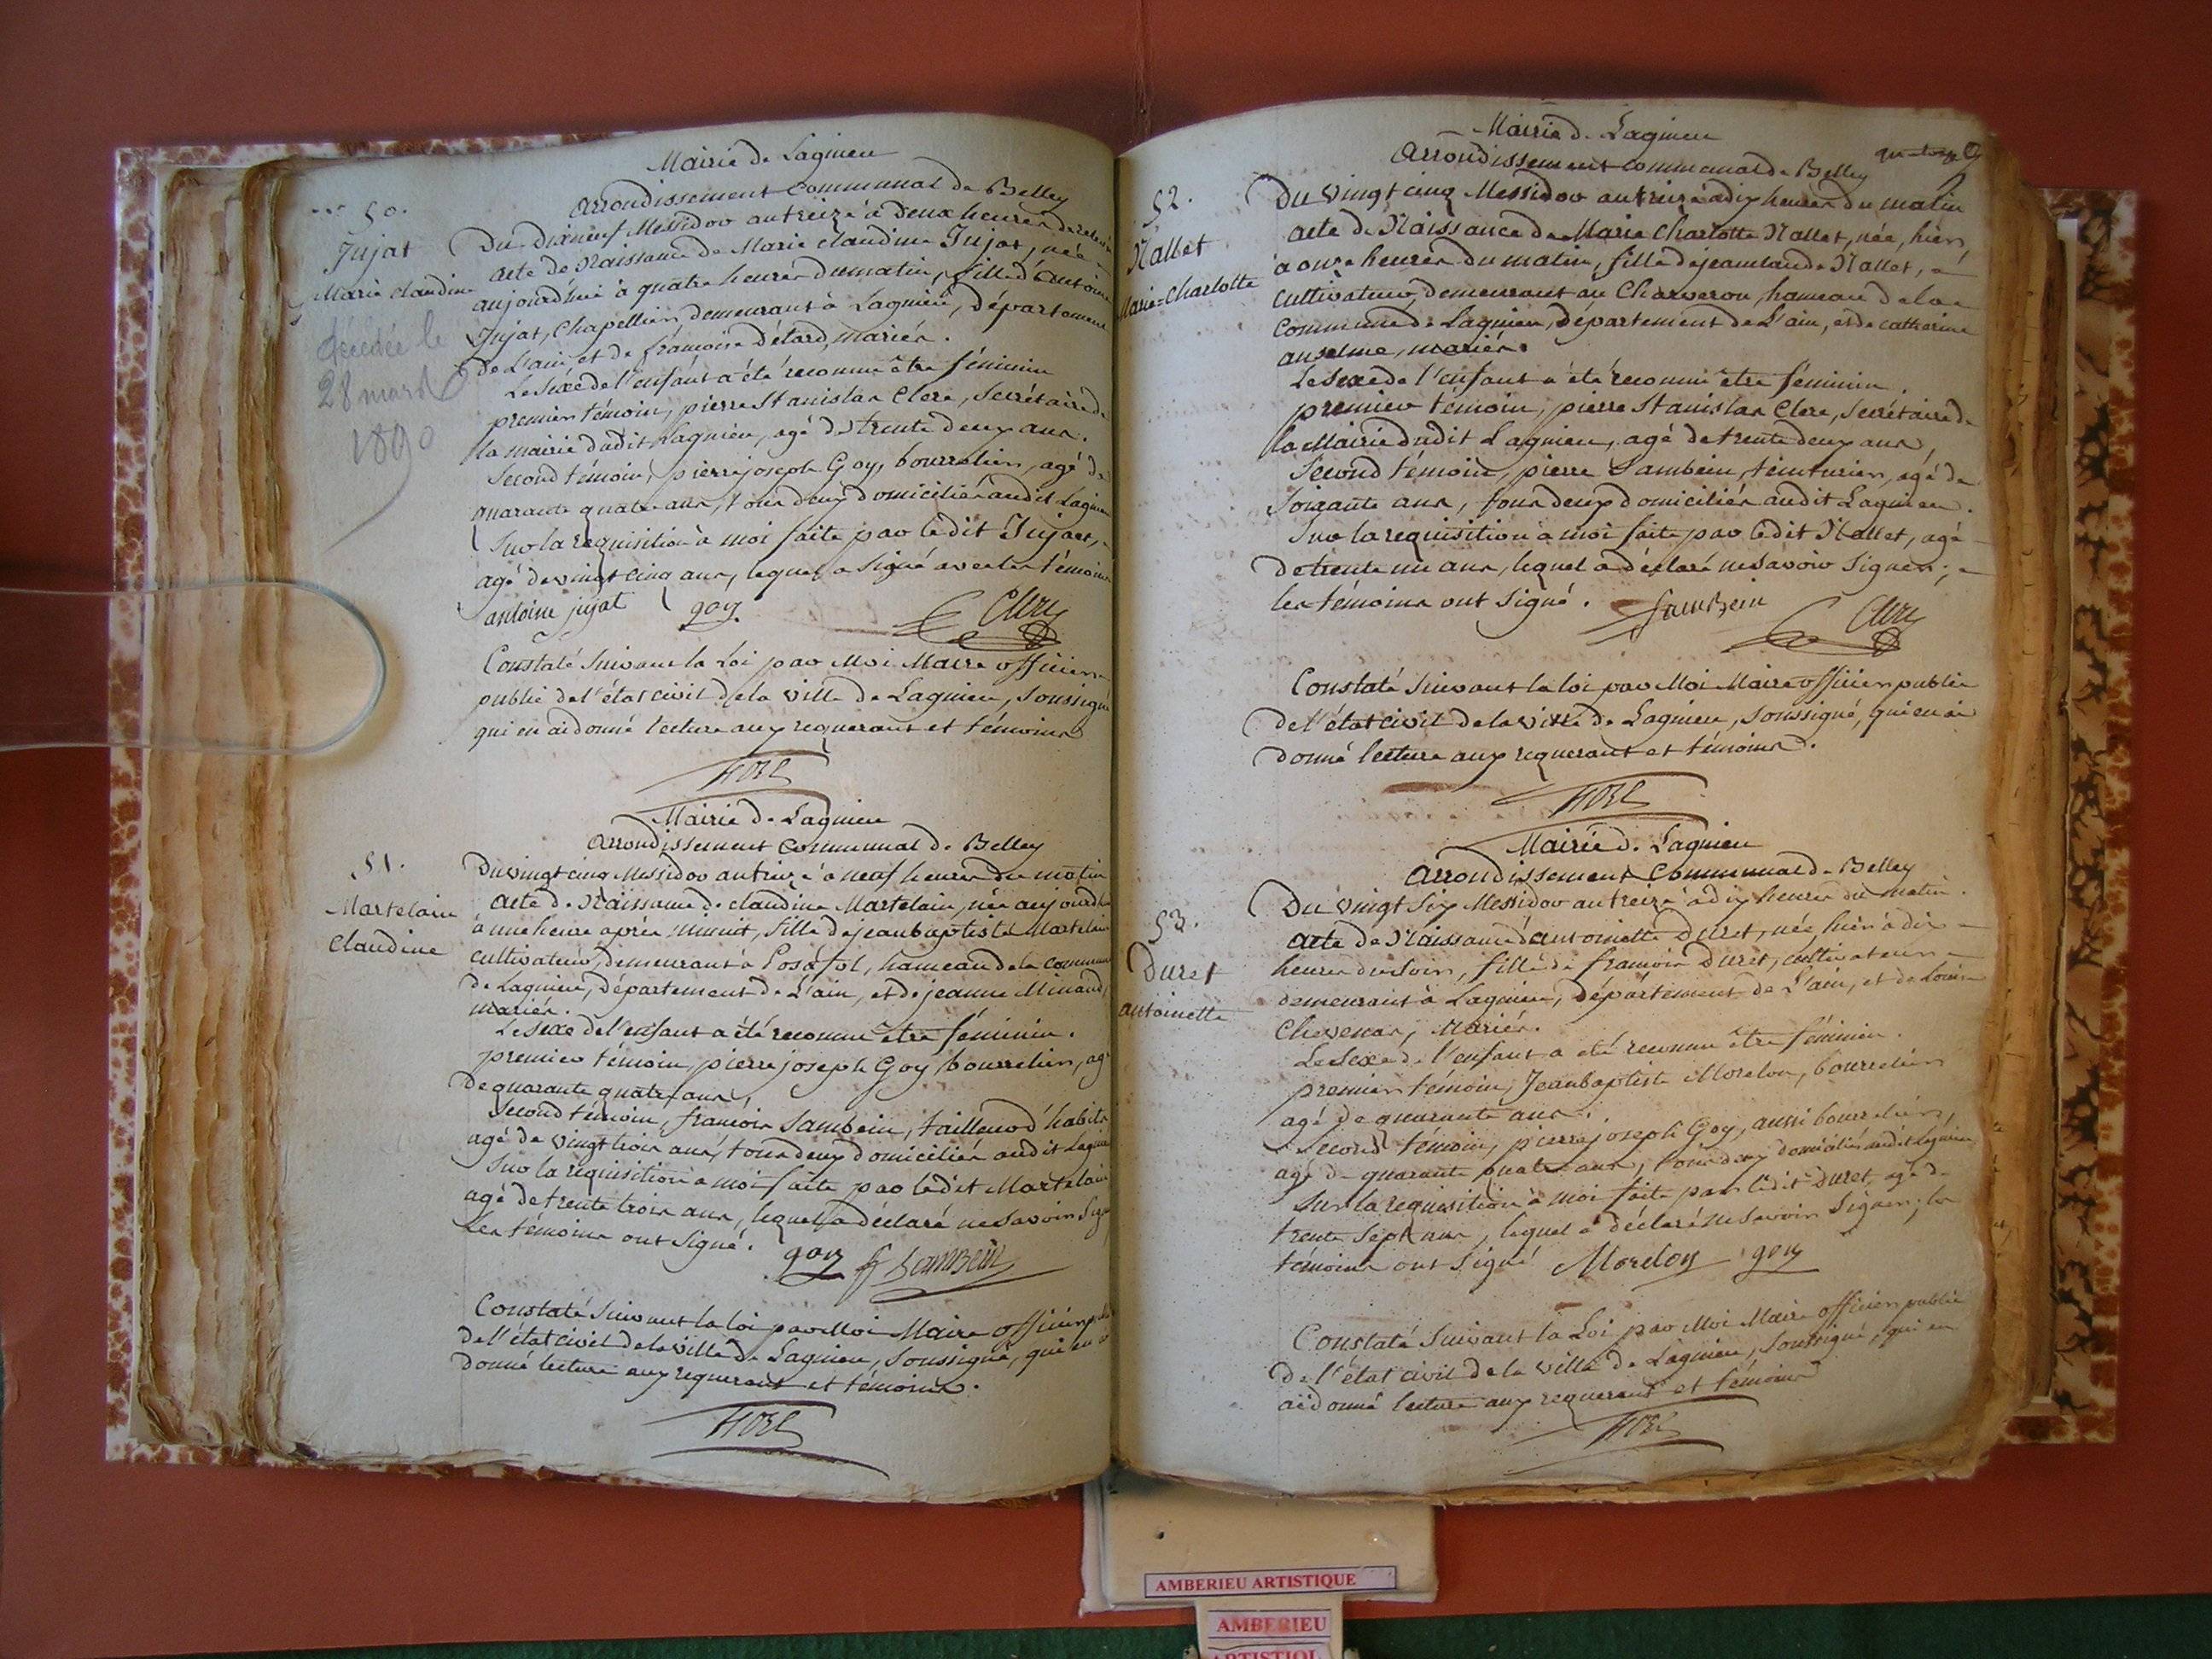 Mairie de Lagnieu
Arrondissement Communal de Belley
50.
Jujat
Marie Claudine
décédée le
28 mars
1890
Du dixneuf Messidor an treize à deux heures de relevée
acte de Naissance de Marie Claudine Jujat, née
aujourd'hui à quatre heures du matin, fille d'antoine
Jujat, Chapellier demeurant à Lagnieu, département
de L'ain, et de françoise Détard, mariés.
Le sexe de l'enfant a été reconnu être féminin
premier témoin, pierre Stanislas Clerc, Secrétaire de
la mairie dudit Lagnieu, agé de trente deux ans.
Second témoin, pierre joseph Goy, bourrelier, agé de
quarante quatre ans, tous deux domiciliés audit Lagnieu
Sur la requisition à moi faite par ledit Jujat,
agé de vingt cinq ans, lequel a signé avec les témoins
antoine jujat goy Clerc
Constaté suivant la Loi par Moi Maire officier
public de l'état civil de la ville de Lagnieu, soussigné
qui en ai donné lecture aux requerant et témoins
Mairie de Lagnieu
Arrondissement Communal de Belley
51.
Martelain
Claudine
Du vingt cinq Messidor an treize à neuf heures du matin
acte de Naissance de claudine Martelain, née aujourd'hui
à une heure après minuit, fille de jean baptiste Martelain
cultivateur, demeurant à Posafol, hameau de la commune
de Lagnieu, département de L'ain, et de jeanne Minand,
mariés.
Le sexe de l'enfant a été reconnu être féminin.
premier témoin pierre joseph Goy bourrelier, agé
de quarante quatre ans,
Second témoin, françois Sambein, tailleur d'habits
agé de vingt trois ans, tous deux domiciliés audit Lagnieu
Sur la requisition à moi faite par ledit Martelain
agé de trente trois ans, lequel a déclaré ne savoir signer
Les témoins ont signé.
goy f Sambein
Constaté suivant la loi par Moi Maire officier public
de l'état civil de la ville de Lagnieu, soussigné, qui en ai
donné lecture aux requerant et témoins.
Mairie de Lagnieu
Arrondissement communal de Belley
quatorze
52.
Nallet
Marie=Charlotte
Du vingt cinq Messidor an treize à dix heures du matin
acte de Naissance de Marie Charlotte Nallet, née, hier,
à onze heures du matin, fille de jean claude Nallet,
cultivateur, demeurant au Charveron, hameau de la
Commune de Lagnieu, département de L'ain, et de catherine
anselme, mariés.
Le sexe de l'enfant a été reconnu être féminin.
premier témoin, pierre Stanislas Clerc, Secrétaire de
la Mairie dudit Lagnieu, agé de trente deux ans,
Second témoin, pierre Sambein, teinturier, agé de
soixante ans, tous deux domiciliés audit Lagnieu.
Sur la requisition à moi faite par ledit Nallet, agé
de trente un ans, lequel a déclaré ne savoir signer;
les témoins ont signé. Sambein Clerc
Constaté suivant la loi par Moi Maire officier public
de l'état civil de la ville de Lagnieu, soussigné, qui en ai
donné lecture aux requerant et témoins.
Mairie de Lagnieu
Arrondissement Communal de Belley
53.
Duret
antoinette
Du vingt six Messidor an treize à dix heures du matin.
acte de Naissance d'antoinette Duret, née, hier à dix
heures du soir, fille de françois Duret, cultivateur
demeurant à Lagnieu, département de L'ain, et de Louise
Chevenas, Mariés.
Le sexe de l'enfant a été reconnu être féminin.
premier témoin, Jean baptiste Morelon, bourrelier
agé de quarante ans.
Second témoin, pierre joseph Goy, aussi bourrelier,
agé de quarante quatre ans, tous deux domiciliés audit Lagnieu
Sur la requisition à moi faite par ledit Duret, agé de
trente sept ans, lequel a déclaré ne savoir signer; les
témoins ont signé Morelon goy
Constaté suivant la Loi par Moi Maire officier public
de l'état civil de la ville de Lagnieu, soussigné, qui en
ai donné lecture aux requerant et témoins
AMBERIEU ARTISTIQUE
AMBERIEU